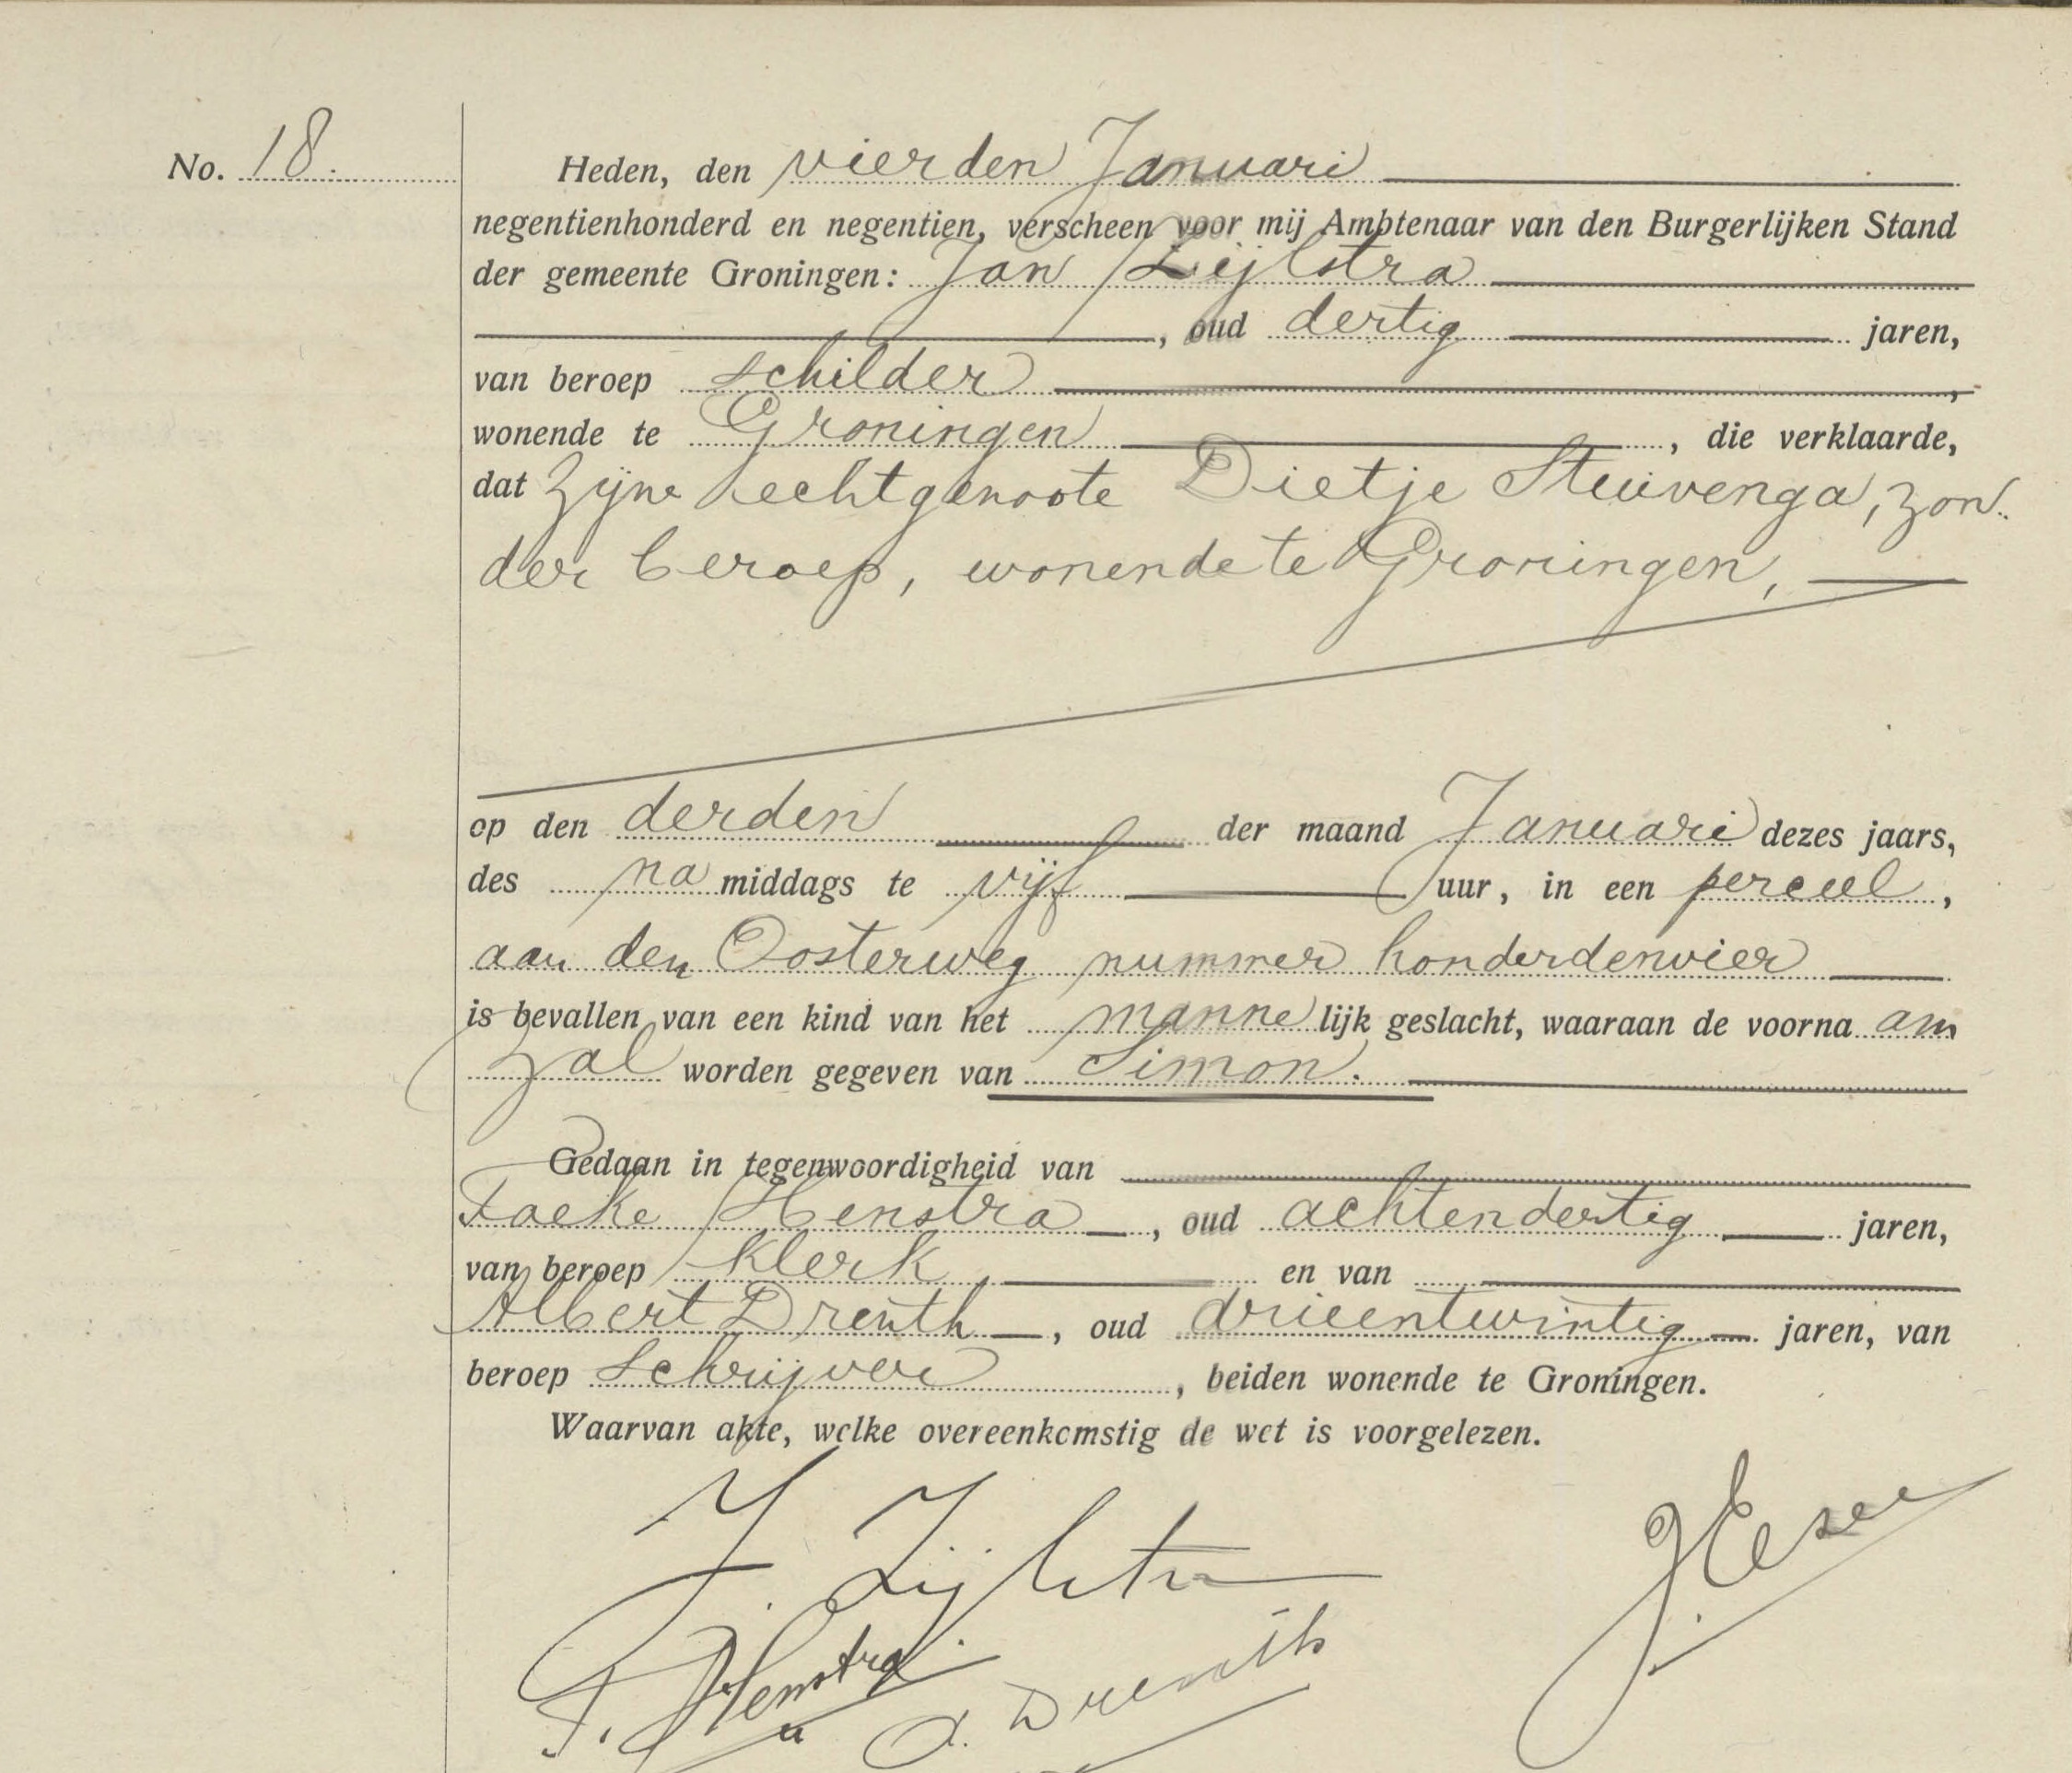 No. 18.
Heden, den vierden Januari
negentienhonderd en negentien, verscheen voor mij Ambtenaar van den Burgerlijken Stand
der gemeente Groningen: Jan Zijlstra
, oud dertig jaren,
van beroep schilder,
wonende te Groningen, die verklaarde,
dat zijne echtgenoote Dietje Stuivenga, zon-
der beroep, wonende te Groningen,
op den derden der maand Januari dezes jaars,
des na middags te vijf uur, in een perceel,
aan den Oosterweg nummer honderdenvier
is bevallen van een kind van het manne lijk geslacht, waaraan de voorna am
zal worden gegeven van Simon.
Gedaan in tegenwoordigheid van
Foeke Henstra, oud achtendertig jaren,
van beroep klerk en van
Albert Drenth, oud drieentwintig jaren, van
beroep schrijver, beiden wonende te Groningen.
Waarvan akte, welke overeenkomstig de wet is voorgelezen.
J. Zijlstra
F. Henstra
A. Drenth